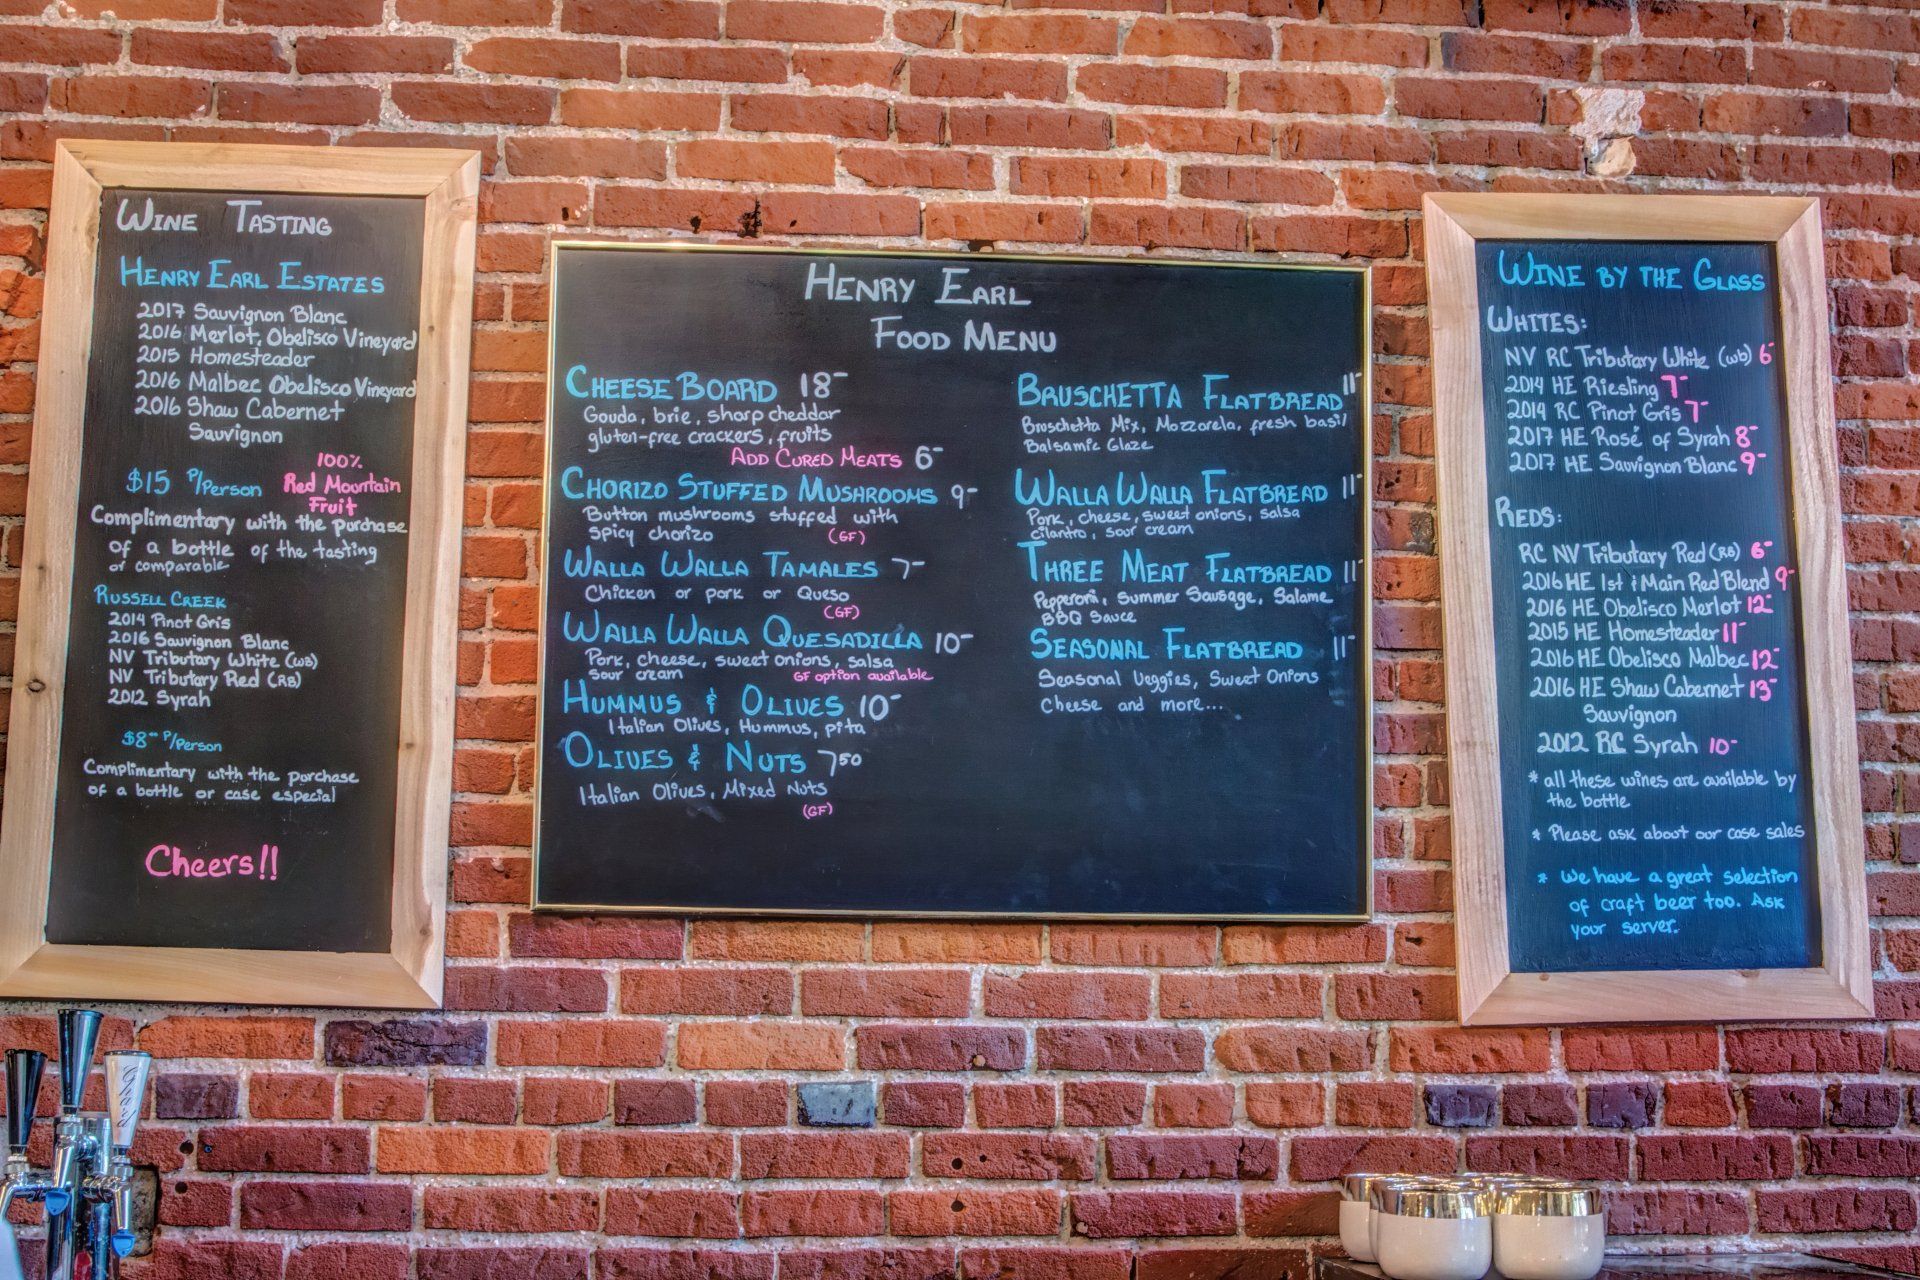 WINE TASTING
HENRY EARL ESTATES
2017 Sauvignon Blanc
2016 Merlot, Obelisco Vineyard
2015 Homesteader
2016 Malbec Obelisco Vineyard
2016 Shaw Cabernet
Sauvignon
$15 P/Person
100%
Red Mountain
Fruit
Complimentary with the purchase
of a bottle of the tasting
or comparable
RUSSELL CREEK
2014 Pinot Gris
2016 Sauvignon Blanc
NV Tributary White (WB)
NV Tributary Red (RB)
2012 Syrah
$8⁻⁻ P/Person
Complimentary with the purchase
of a bottle or case especial
Cheers!!
HENRY EARL
FOOD MENU
CHEESE BOARD 18-
Gouda, brie, sharp cheddar
gluten-free crackers, fruits
ADD CURED MEATS 6-
CHORIZO STUFFED MUSHROOMS 9-
Button mushrooms stuffed with
spicy chorizo (GF)
WALLA WALLA TAMALES 7-
Chicken or pork or Queso
(GF)
WALLA WALLA QUESADILLA 10-
Pork, cheese, sweet onions, salsa
sour cream GF option available
HUMMUS & OLIVES 10-
Italian Olives, Hummus, pita
OLIVES & NUTS 7 50
Italian Olives, Mixed Nuts
(GF)
BRUSCHETTA FLATBREAD 11-
Bruschetta Mix, Mozzorela, fresh basil
Balsamic Glaze
WALLA WALLA FLATBREAD 11-
Pork, cheese, sweet onions, salsa
cilantro, sour cream
THREE MEAT FLATBREAD 11-
Pepperoni, Summer Sausage, Salame
BBQ Sauce
SEASONAL FLATBREAD 11-
Seasonal Veggies, Sweet Onions
Cheese and more...
WINE BY THE GLASS
WHITES:
NV RC Tributary White (WB) 6-
2014 HE Riesling 7-
2014 RC Pinot Gris 7-
2017 HE Rosé of Syrah 8-
2017 HE Sauvignon Blanc 9-
REDS:
RC NV Tributary Red (RB) 6-
2016 HE 1st & Main Red Blend 9-
2016 HE Obelisco Merlot 12-
2015 HE Homesteader 11-
2016 HE Obelisco Malbec 12-
2016 HE Shaw Cabernet 13-
Sauvignon
2012 RC Syrah 10-
* all these wines are available by
the bottle
* Please ask about our case sales
* We have a great selection
of craft beer too. Ask
your server.